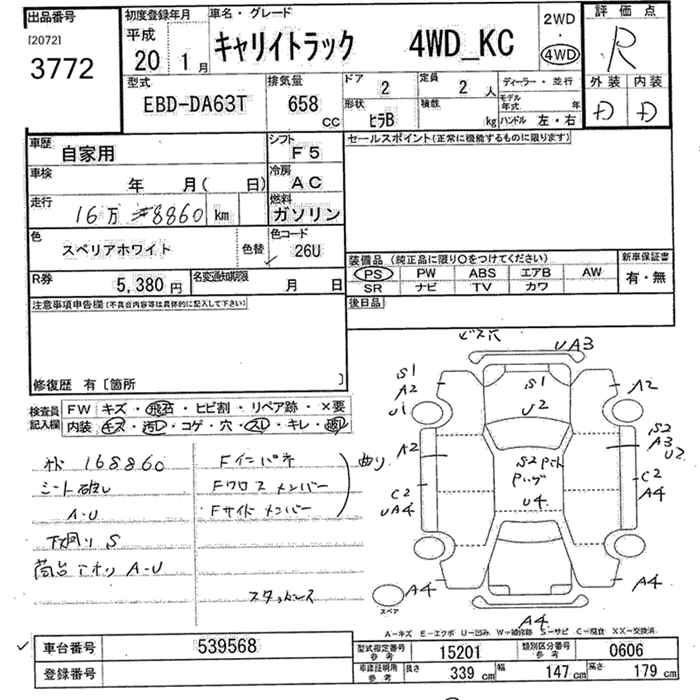 出品番号
[2072]
3772
初度登録年月
平成
20年 1月
車名・グレード
キャリイトラック 4WD_KC
2WD
・
4WD
評価点
R
外装 内装
D D
型式
EBD-DA63T
排気量
658 CC
ドア
2
形状
ヒラB
定員
2 人
積載
kg
ディーラー・並行
モデル年式 年
ハンドル 左・右
車歴
自家用
シフト
F5
車検
年 月( 日)
冷房
AC
走行
16万 #8860 km
燃料
ガソリン
色
スペリアホワイト
色替
色コード
26U
R券
5,380 円
名変通知期限
月 日
セールスポイント(正常に機能するものに限ります)
装備品(純正品に限り○をつけてください)
PS PW ABS エアB AW
SR ナビ TV カワ
新車保証書
有・無
後日品
注意事項申告欄(不具合内容等は具体的に記入して下さい)
修復歴 有〔箇所 〕
検査員記入欄
FW キズ・飛石・ヒビ割・リペア跡・×要
内装 キズ・汚レ・コゲ・穴・スレ・キレ・破レ
168860
Fインパネ
曲り
シート破レ
Fクロスメンバー
A-U
Fサイドメンバー
下廻り S
荷台アオリ A-U
スタッドレス
ビス穴
UA3
S1
A2
U1
S1
U2
A2
A2
S2
A3
U2
S2 P
U4
C2
UA4
C2
A4
A4
A4
A4
スペア
A-キズ E-エクボ U-凹み W-補修跡 S-サビ C-腐食 XX-交換済
車台番号 539568
登録番号
型式指定番号 参考 15201
類別区分番号 参考 0606
車庫証明用 参考 長さ 339 cm 幅 147 cm 高さ 179 cm